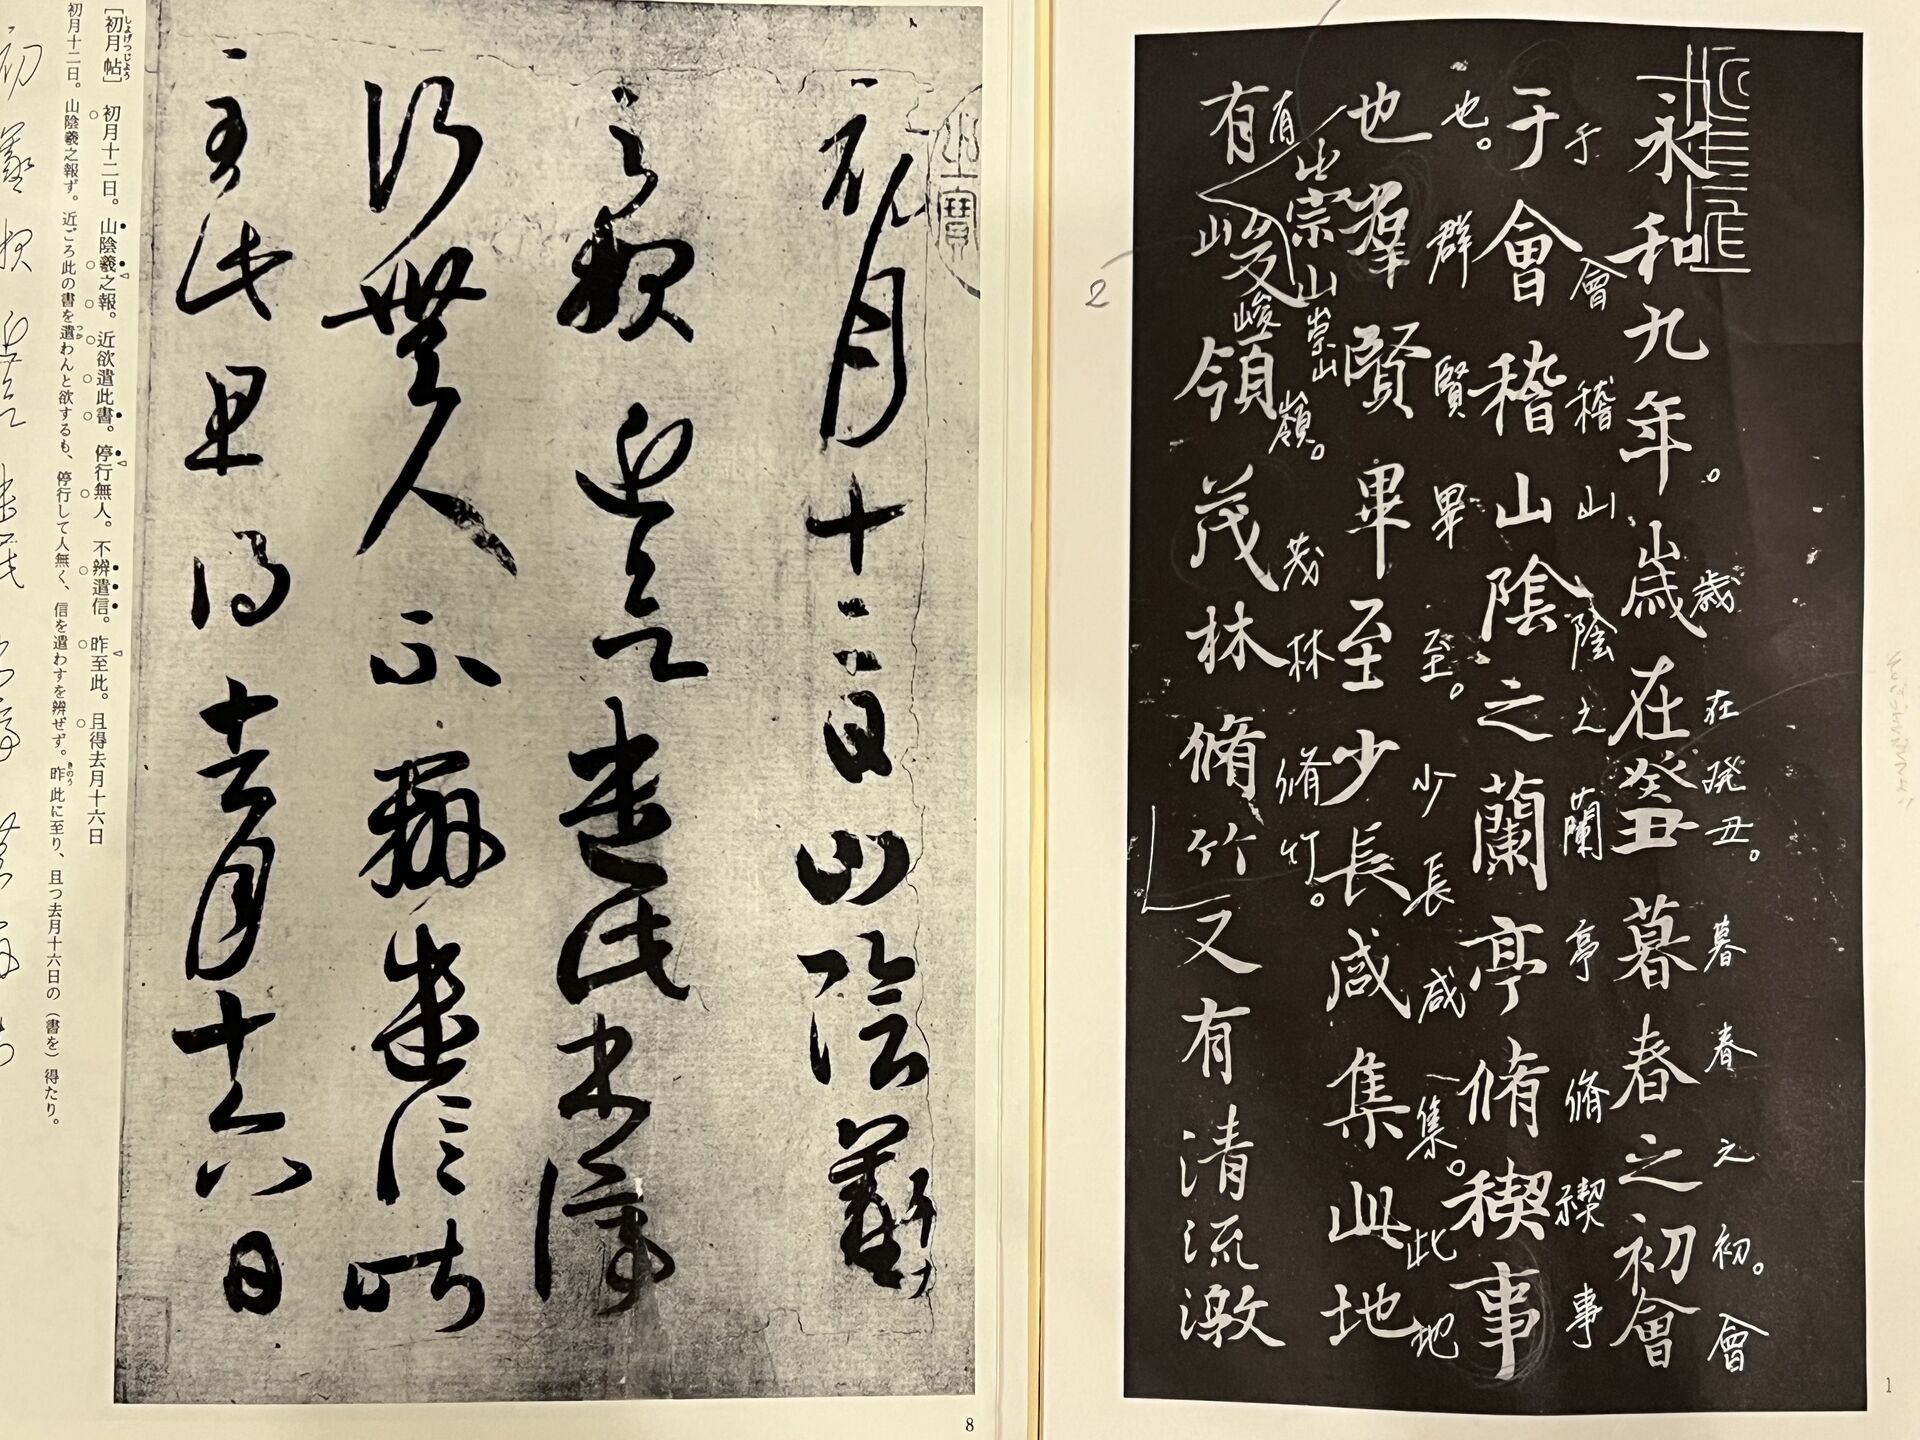 永和九年歳在癸丑暮春之初會
歳在癸丑。暮春之初。會
于會稽山陰之蘭亭脩稧事
于會稽山陰之蘭亭脩禊事
也羣賢畢至少長咸集此地
也。群賢畢至。少長咸集。此地
崇山
有峻領茂林脩竹又有清流激
有山崇山峻嶺。茂林脩竹。
2
1
初月十二日山陰羲
之報近欲遣此書停
行無人不辨遣信昨
至此且得去月十六日
[初月帖] 初月十二日。山陰羲之報。近欲遣此書。停行無人。不辨遣信。昨至此。且得去月十六日
初月十二日。山陰羲之報ず。近ごろ此の書を遣わんと欲するも、停行して人無く、信を遣わすを辨ぜず。昨此に至り、且つ去月十六日の（書を）得たり。
8